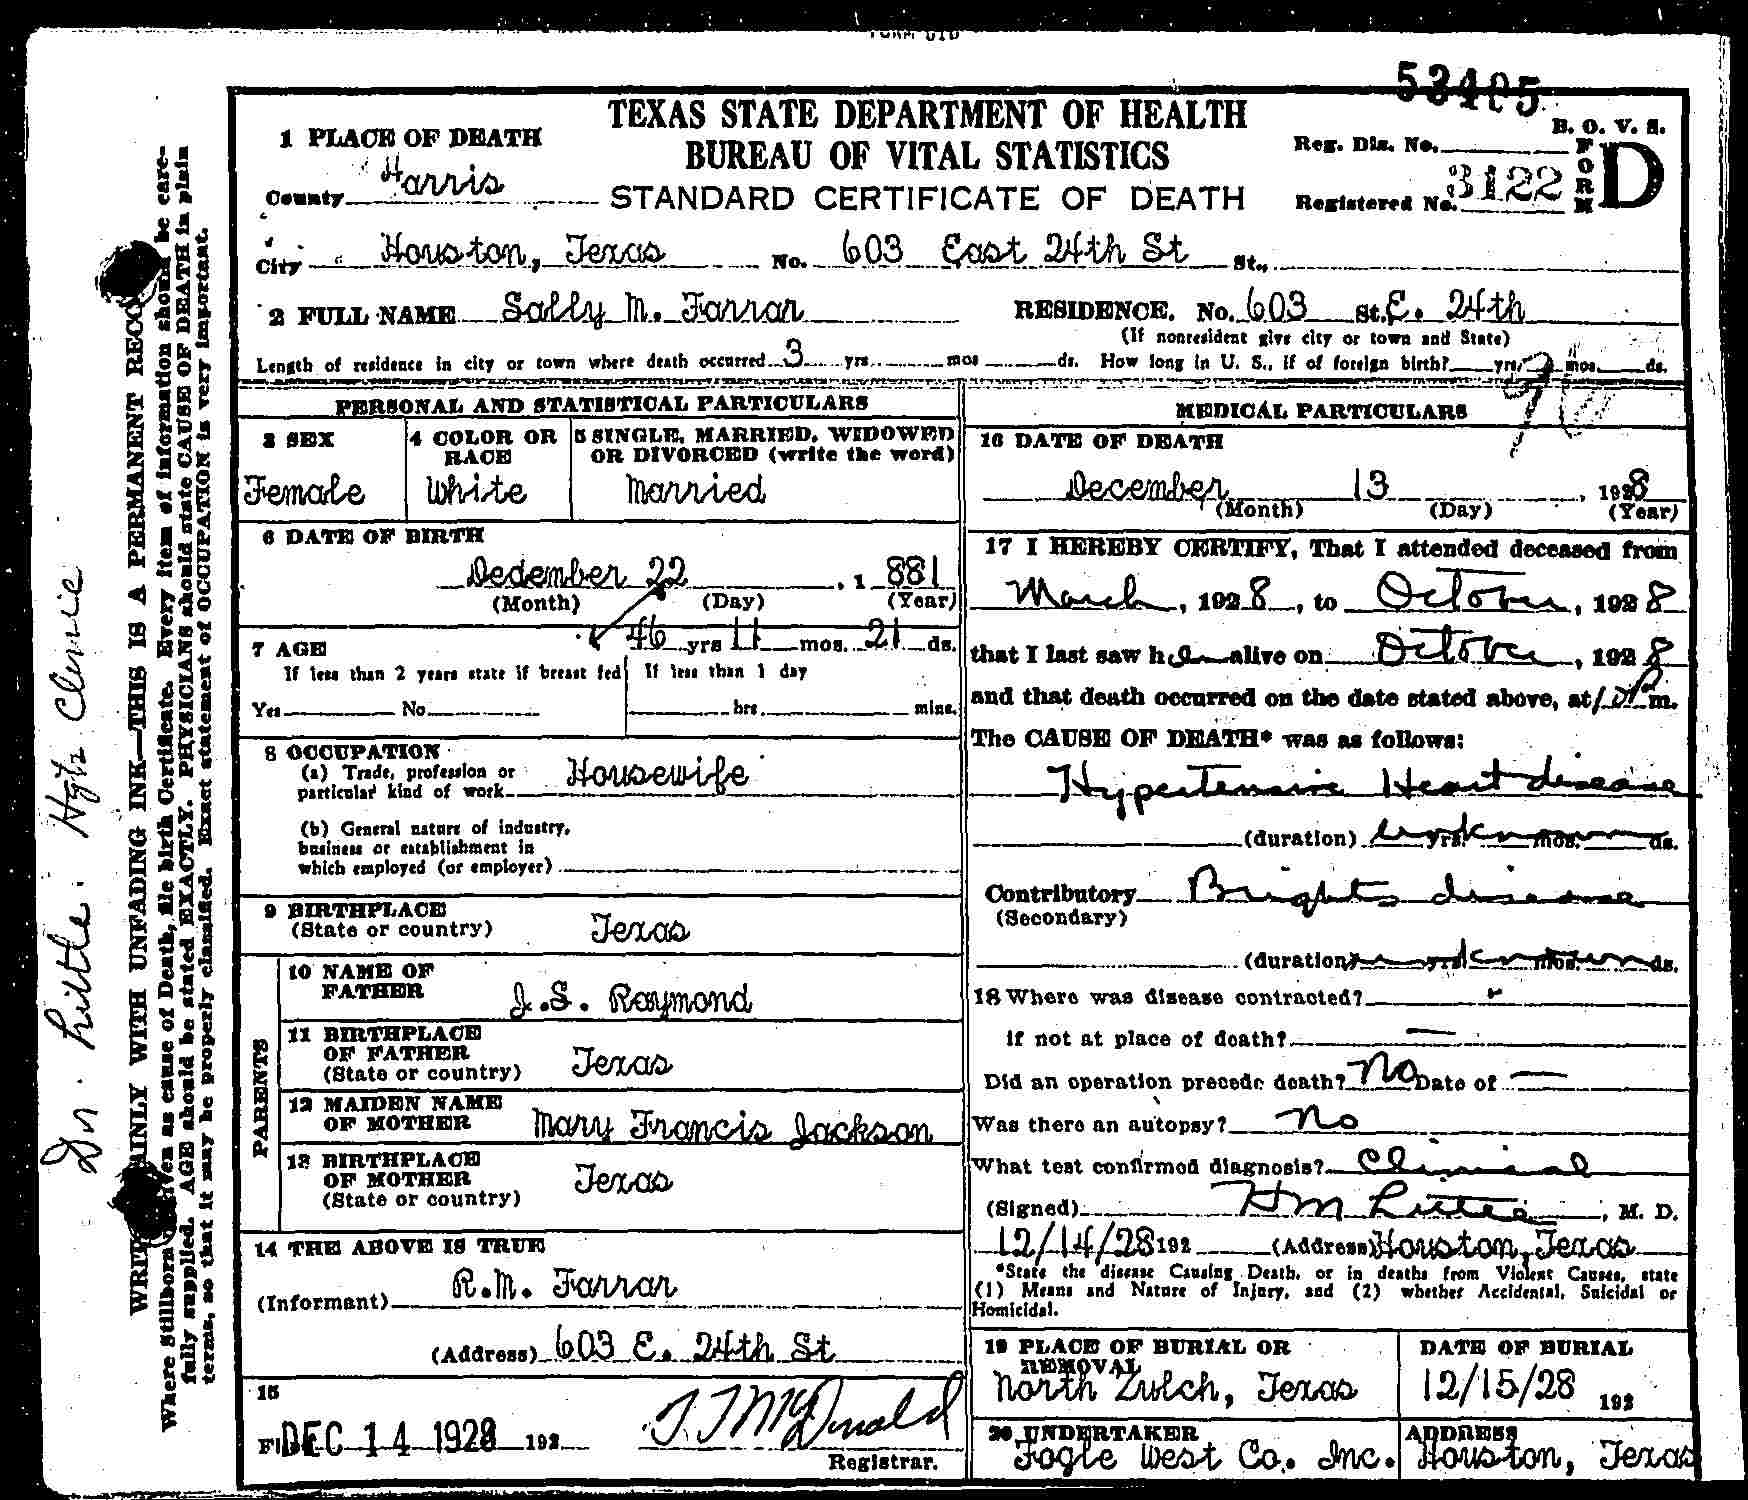 FORM D1D
53405
TEXAS STATE DEPARTMENT OF HEALTH
BUREAU OF VITAL STATISTICS
STANDARD CERTIFICATE OF DEATH
B. O. V. S.
FORM D
Reg. Dis. No.
Registered No. 3122
1 PLACE OF DEATH
County Harris
City Houston, Texas No. 603 East 24th St St.,
2 FULL NAME Sally M. Farrar RESIDENCE. No. 603 St. E. 24th
(If nonresident give city or town and State)
Length of residence in city or town where death occurred 3 yrs. mos ds. How long in U. S., if of foreign birth? yrs. mos. ds.
PERSONAL AND STATISTICAL PARTICULARS
3 SEX
Female
4 COLOR OR RACE
White
5 SINGLE, MARRIED, WIDOWED OR DIVORCED (write the word)
Married
6 DATE OF BIRTH
December 22, 1 881
(Month) (Day) (Year)
7 AGE 46 yrs 11 mos. 21 ds.
If less than 2 years state if breast fed
Yes No
If less than 1 day
hrs. mins.
8 OCCUPATION
(a) Trade, profession or particular kind of work Housewife
(b) General nature of industry,
business or establishment in
which employed (or employer)
9 BIRTHPLACE
(State or country) Texas
PARENTS
10 NAME OF FATHER J.S. Raymond
11 BIRTHPLACE OF FATHER
(State or country) Texas
12 MAIDEN NAME OF MOTHER Mary Francis Jackson
13 BIRTHPLACE OF MOTHER
(State or country) Texas
14 THE ABOVE IS TRUE
(Informant) R.M. Farrar
(Address) 603 E. 24th St
15
DEC 14 1928 192
T. T. McDonald
Registrar.
MEDICAL PARTICULARS
16 DATE OF DEATH
December 13, 1928
(Month) (Day) (Year)
17 I HEREBY CERTIFY, That I attended deceased from
March, 1928, to October, 1928
that I last saw her alive on October, 1928
and that death occurred on the date stated above, at m.
The CAUSE OF DEATH* was as follows:
Hypertensive Heart disease
(duration) unknown yrs. mos. ds.
Contributory Brights disease
(Secondary)
(duration) unknown yrs. mos. ds.
18 Where was disease contracted?
if not at place of death? —
Did an operation precede death? No Date of —
Was there an autopsy? No
What test confirmed diagnosis? Clinical
(Signed) HM Little, M. D.
12/14/28 192 (Address) Houston, Texas
*State the disease Causing Death, or in deaths from Violent Causes, state
(1) Means and Nature of Injury, and (2) whether Accidental, Suicidal or
Homicidal.
19 PLACE OF BURIAL OR REMOVAL
North Zulch, Texas
DATE OF BURIAL
12/15/28 192
20 UNDERTAKER
Fogle West Co. Inc.
ADDRESS
Houston, Texas
WRITE PLAINLY WITH UNFADING INK—THIS IS A PERMANENT RECO
Where Stillborn given as cause of Death, file birth Certificate. Every item of information should be care-
fully supplied. AGE should be stated EXACTLY. PHYSICIANS should state CAUSE OF DEATH in plain
terms, so that it may be properly classified. Exact statement of OCCUPATION is very important.
Dr. Little.